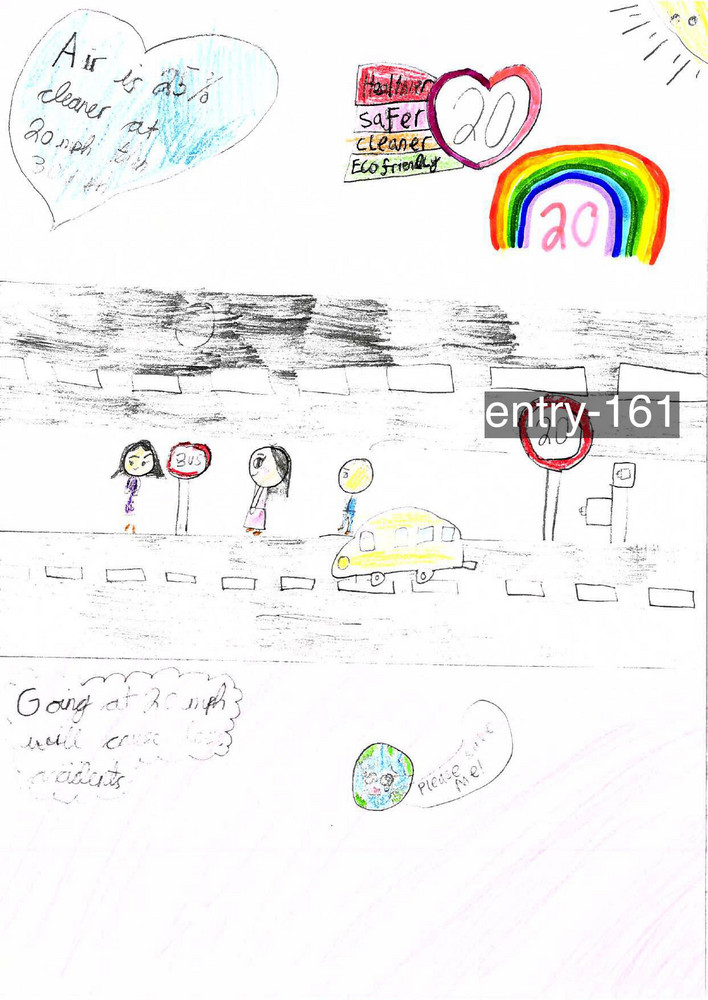 Air is 25%
cleaner at
20 mph than
30
Healthier
safer
cleaner
Eco friendly
20
20
entry-161
20
BUS
Going at 20 mph
will cause less
accidents
Please
me!